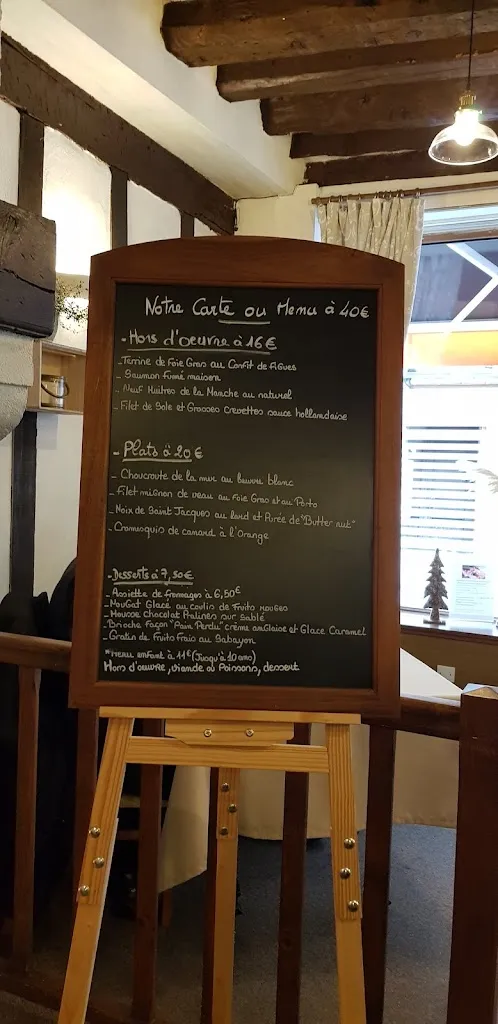 Notre Carte ou Menu à 40€
- Hors d'oeuvre à 16€
- Terrine de Foie Gras au Confit de Figues
- Saumon fumé maison
- Neuf Huitres de la Manche au naturel
- Filet de Sole et Grosses Crevettes sauce hollandaise
- Plats à 20€
- Choucroute de la mer au beurre blanc
- Filet mignon de veau au Foie Gras et au Porto
- Noix de Saint Jacques au lard et Purée de "Butter nut"
- Cromusquis de canard à l'Orange
- Desserts à 7,50€
- Assiette de fromages à 6,50€
- Nougat Glacé au coulis de Fruits rouges
- Mousse chocolat Pralines sur Sablé
- Brioche Façon "Pain Perdu" crème anglaise et Glace Caramel
- Gratin de Fruits Frais au Sabayon
*Menu enfant à 11€ (Jusqu'à 10ans)
Hors d'oeuvre, viande ou Poissons, dessert